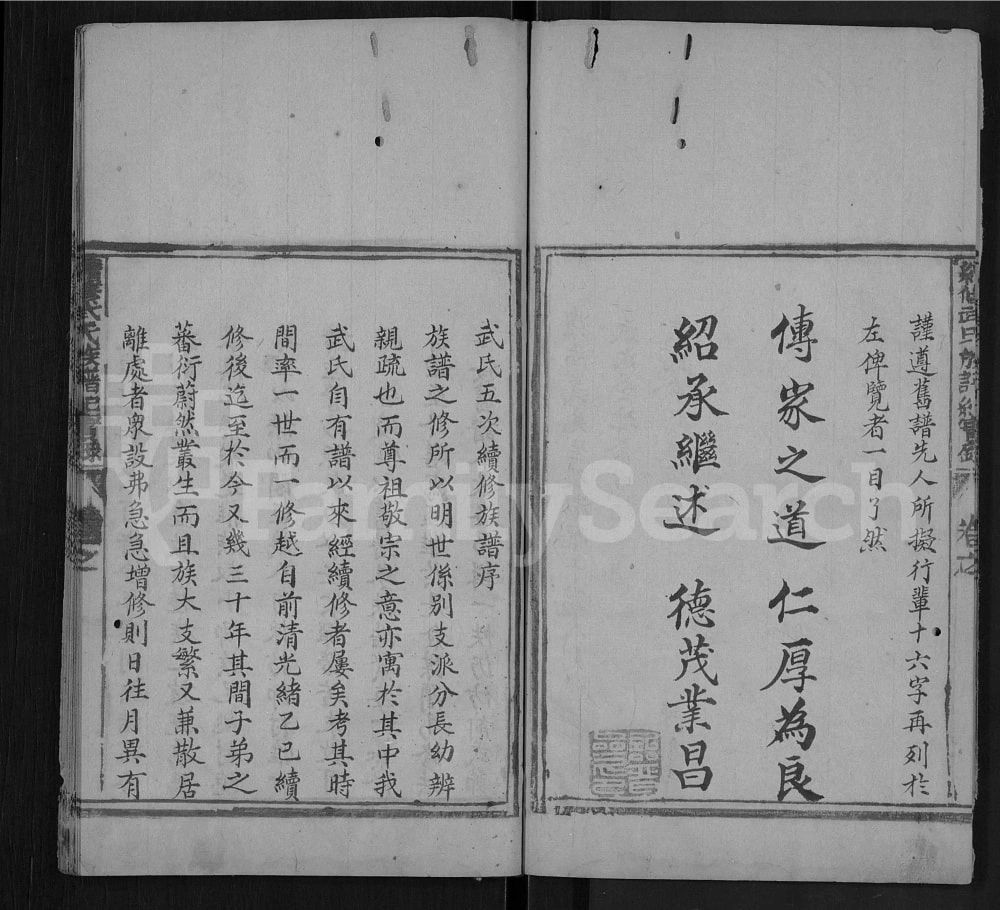 謹遵舊譜先人所擬行輩十六字再列於
左俾覽者一目了然
傳家之道 仁厚為良
紹承繼述 德茂業昌
武氏五次續修族譜序
族譜之修所以明世係別支派分長幼辨
親疏也而尊祖敬宗之意亦寓於其中我
武氏自有譜以來經續修者屢矣考其時
間率一世而一修越自前清光緒乙巳續
修後迄至於今又幾三十年其間子弟之
蕃衍蔚然叢生而且族大支繁又兼散居
離處者衆設弗急急增修則日往月異有
FamilySearch